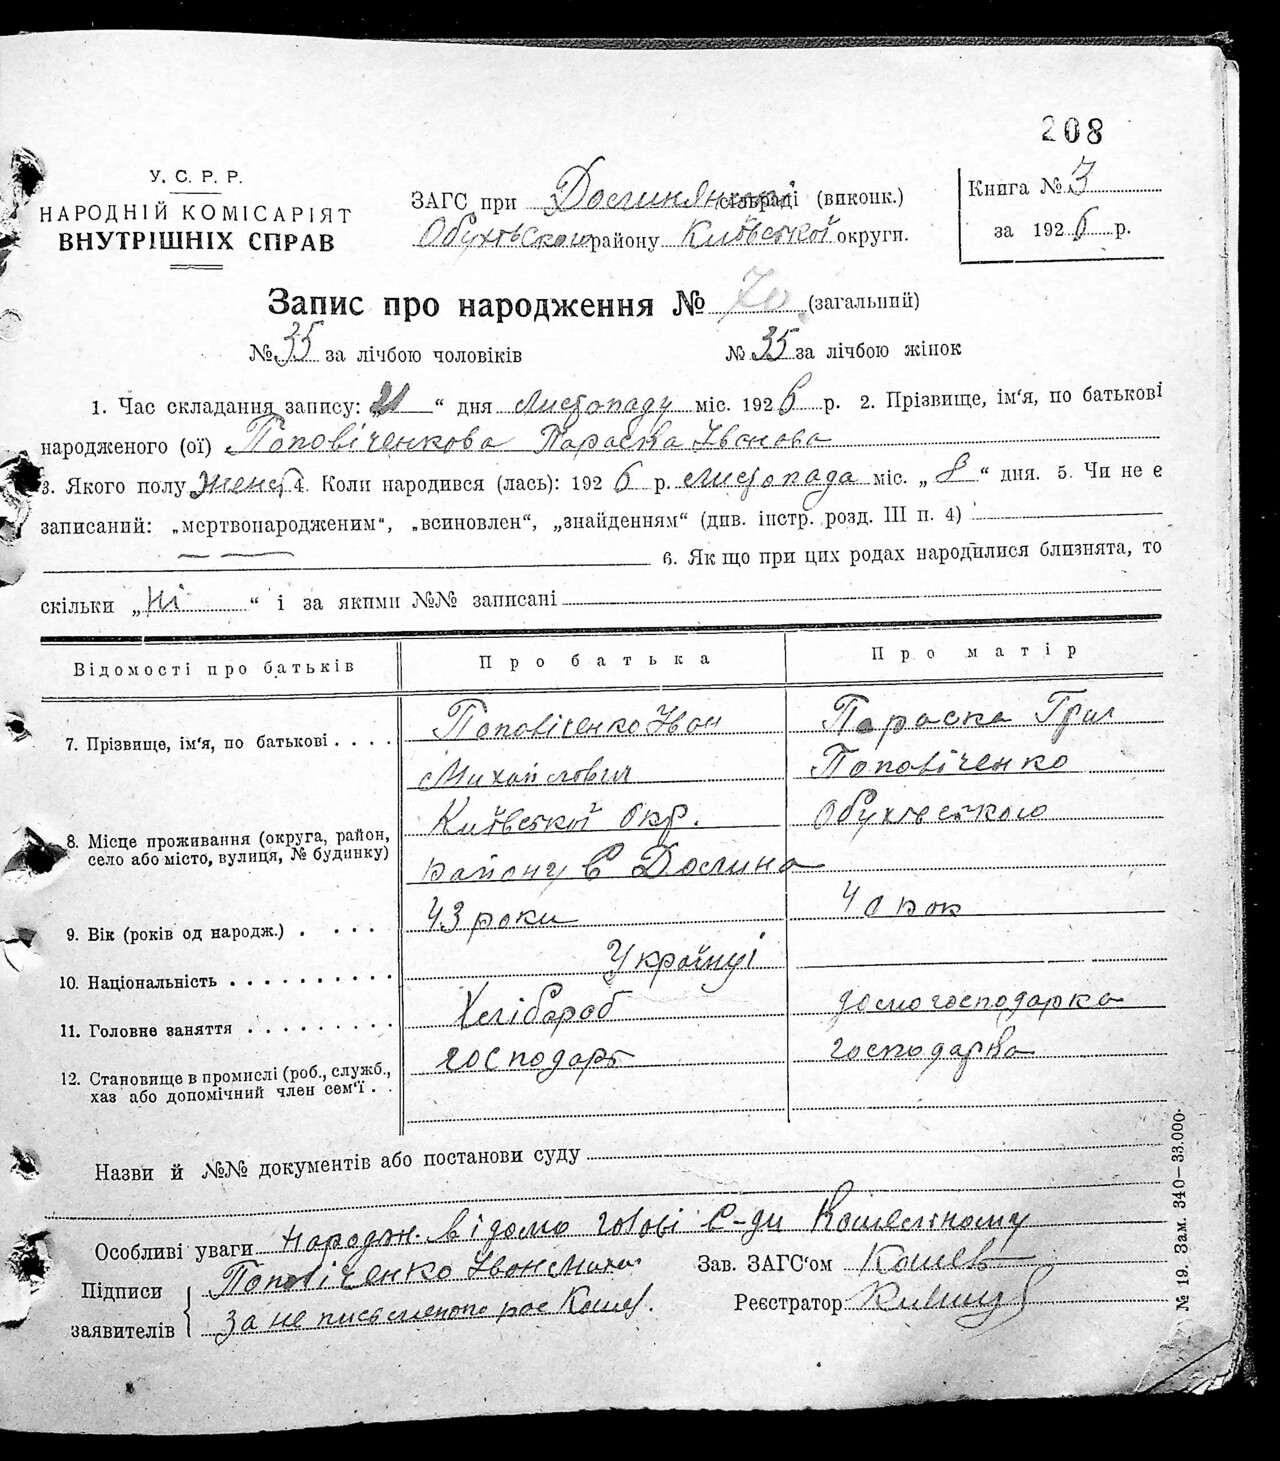 208
У. С. Р. Р.
НАРОДНІЙ КОМІСАРІЯТ
ВНУТРІШНІХ СПРАВ
ЗАГС при Долинянській сільраді (виконк.)
Обухівського району Київської округи.
Книга № 3
за 1926 р.
Запис про народження № 70 (загальний)
№ 35 за лічбою чоловіків № 35 за лічбою жінок
1. Час складання запису: 21 “ дня Листопаду міс. 1926 р. 2. Прізвище, ім'я, по батькові
народженого (ої) Поповіченкова Параска Івонова
3. Якого полу женс. 4. Коли народився (лась): 1926 р. Листопада міс. „ 8 “ дня. 5. Чи не є
записаний: „мертвонародженим“, „всиновлен“, „знайденням“ (див. інстр. розд. III п. 4)
6. Як що при цих родах народилися близнята, то
скільки „ Ні “ і за якими №№ записані
Відомості про батьків Про батька Про матір
7. Прізвище, ім'я, по батькові . . . . Поповіченко Івон Параска Григ
Михайлович Поповіченко
8. Місце проживання (округа, район, село або місто, вулиця, № будинку) Київської Окр. Обухівського
району С Долина
9. Вік (років од народж.) . . . . 43 роки 40 рок
10. Національність . . . . . . . . . . Українці
11. Головне заняття . . . . . . . . . Хліборob домогосподарка
12. Становище в промислі (роб., служб., хаз або допомічний член сем'ї . . господарь господарка
Назви й №№ документів або постанови суду
Особливі уваги народж. відомо голові С-ди Кошельному
Підписи заявителів Поповіченко Івон Миха.
За не письменого рос Кошел.
Зав. ЗАГС'ом Кошел
Реєстратор
№ 19. Зам. 340—33.000.